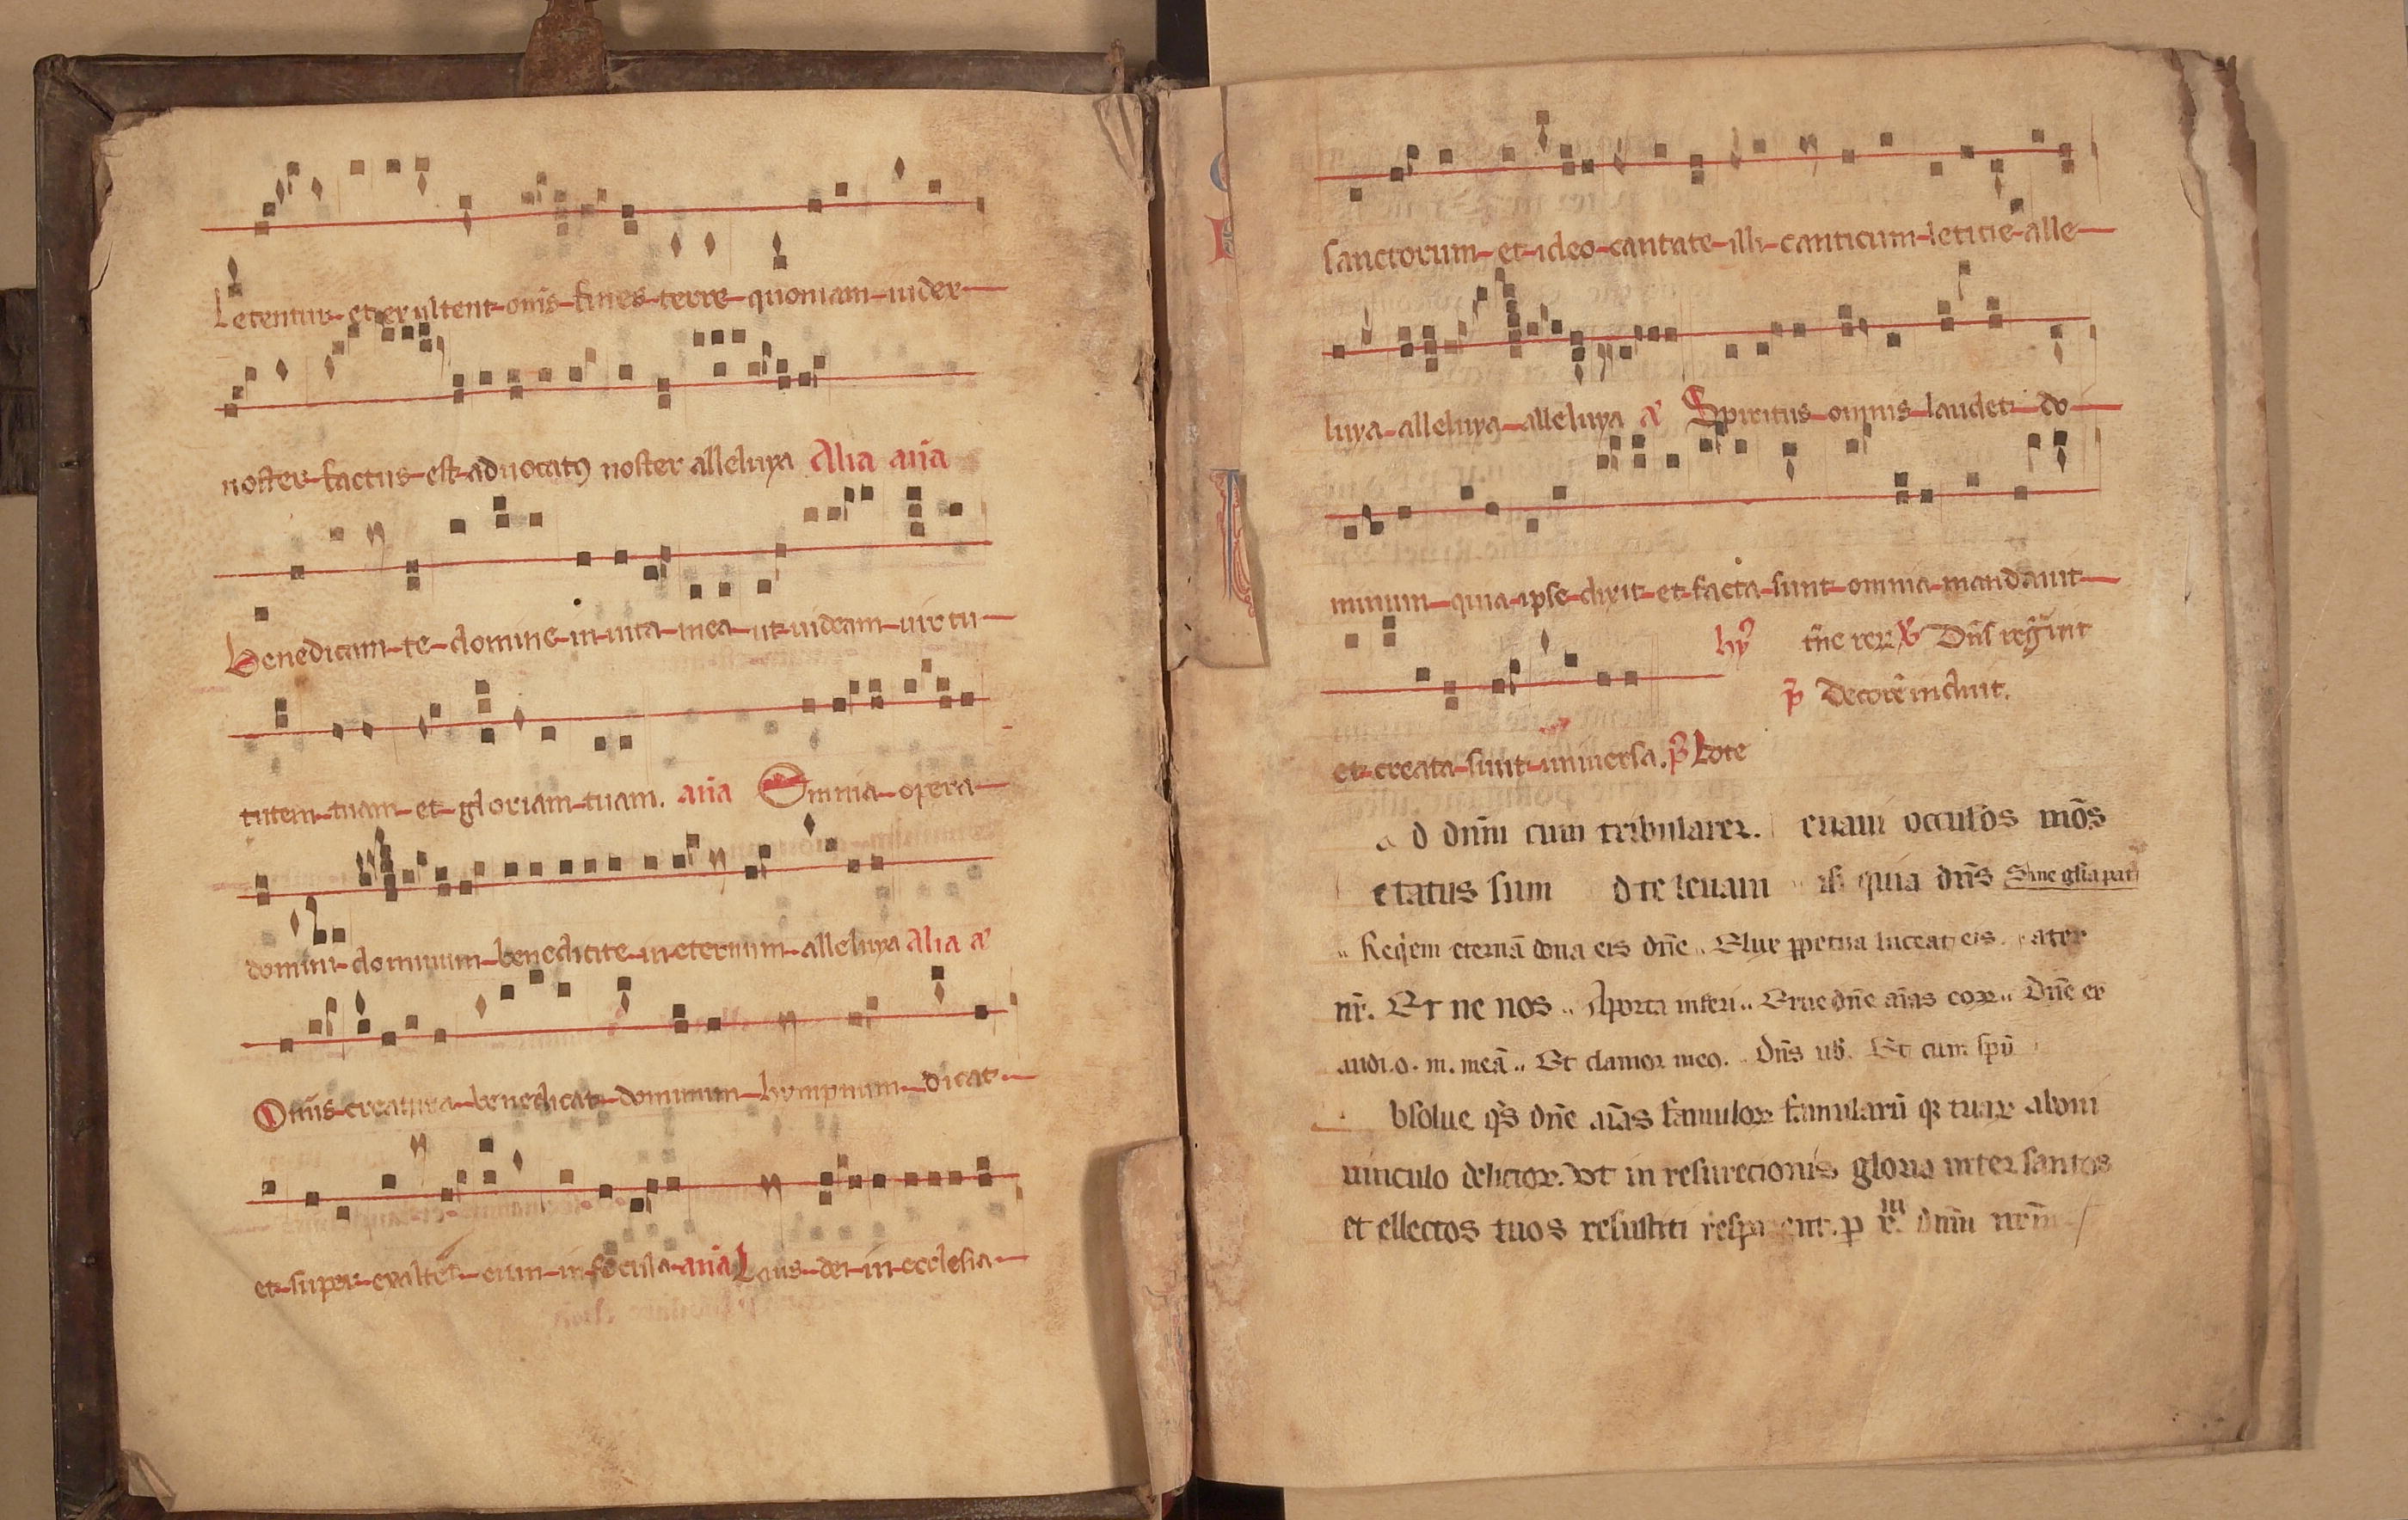 Letentur et exultent om̄s fines terre quoniam iudex
noster factus est aduocatꝰ noster alleluya Alia an̄a
Benedicam te domine in uita mea ut uideam uirtu
tutem tuam et gloriam tuam. an̄a Omnia opera
domini dominum benedicite in eternum alleluya Alia
Om̄is creatura benedicat dominum hympnum dicat
et super exaltet eum in secula an̄a Laus dei in ecclesia
sanctorum et ideo cantate illi canticum letitie alle
luya alleluya alleluya Spiritus omnis laudet do
minum quia ipse dixit et facta sunt omnia mandauit
hy̾ Dn̄s regn̄
p̄ Decorē induit.
et creata sunt uniuersa.
d dn̄m cum tribularer. euaui occulos mōs
etatus sum d te leuaui quia dn̄s Sine gl̄ia
Reqiem eternā dona eis dn̄e .. luceat eis. ater
nr̄. Et ne nos .. Aporta inferi .. Erue dn̄e aīas Dn̄e ex
audi. o. m. meā .. Et clamor meꝰ. Dn̄s Et cum sp̄u
bsolue qs̄ dn̄e aīas famulorꝝ famularū qꝫ tuarꝝ ab om̄i
uinculo delictorꝝ. Vt in resurectionis gloria inter santos
et ellectos tuos resusciti dn̄m nrm̄